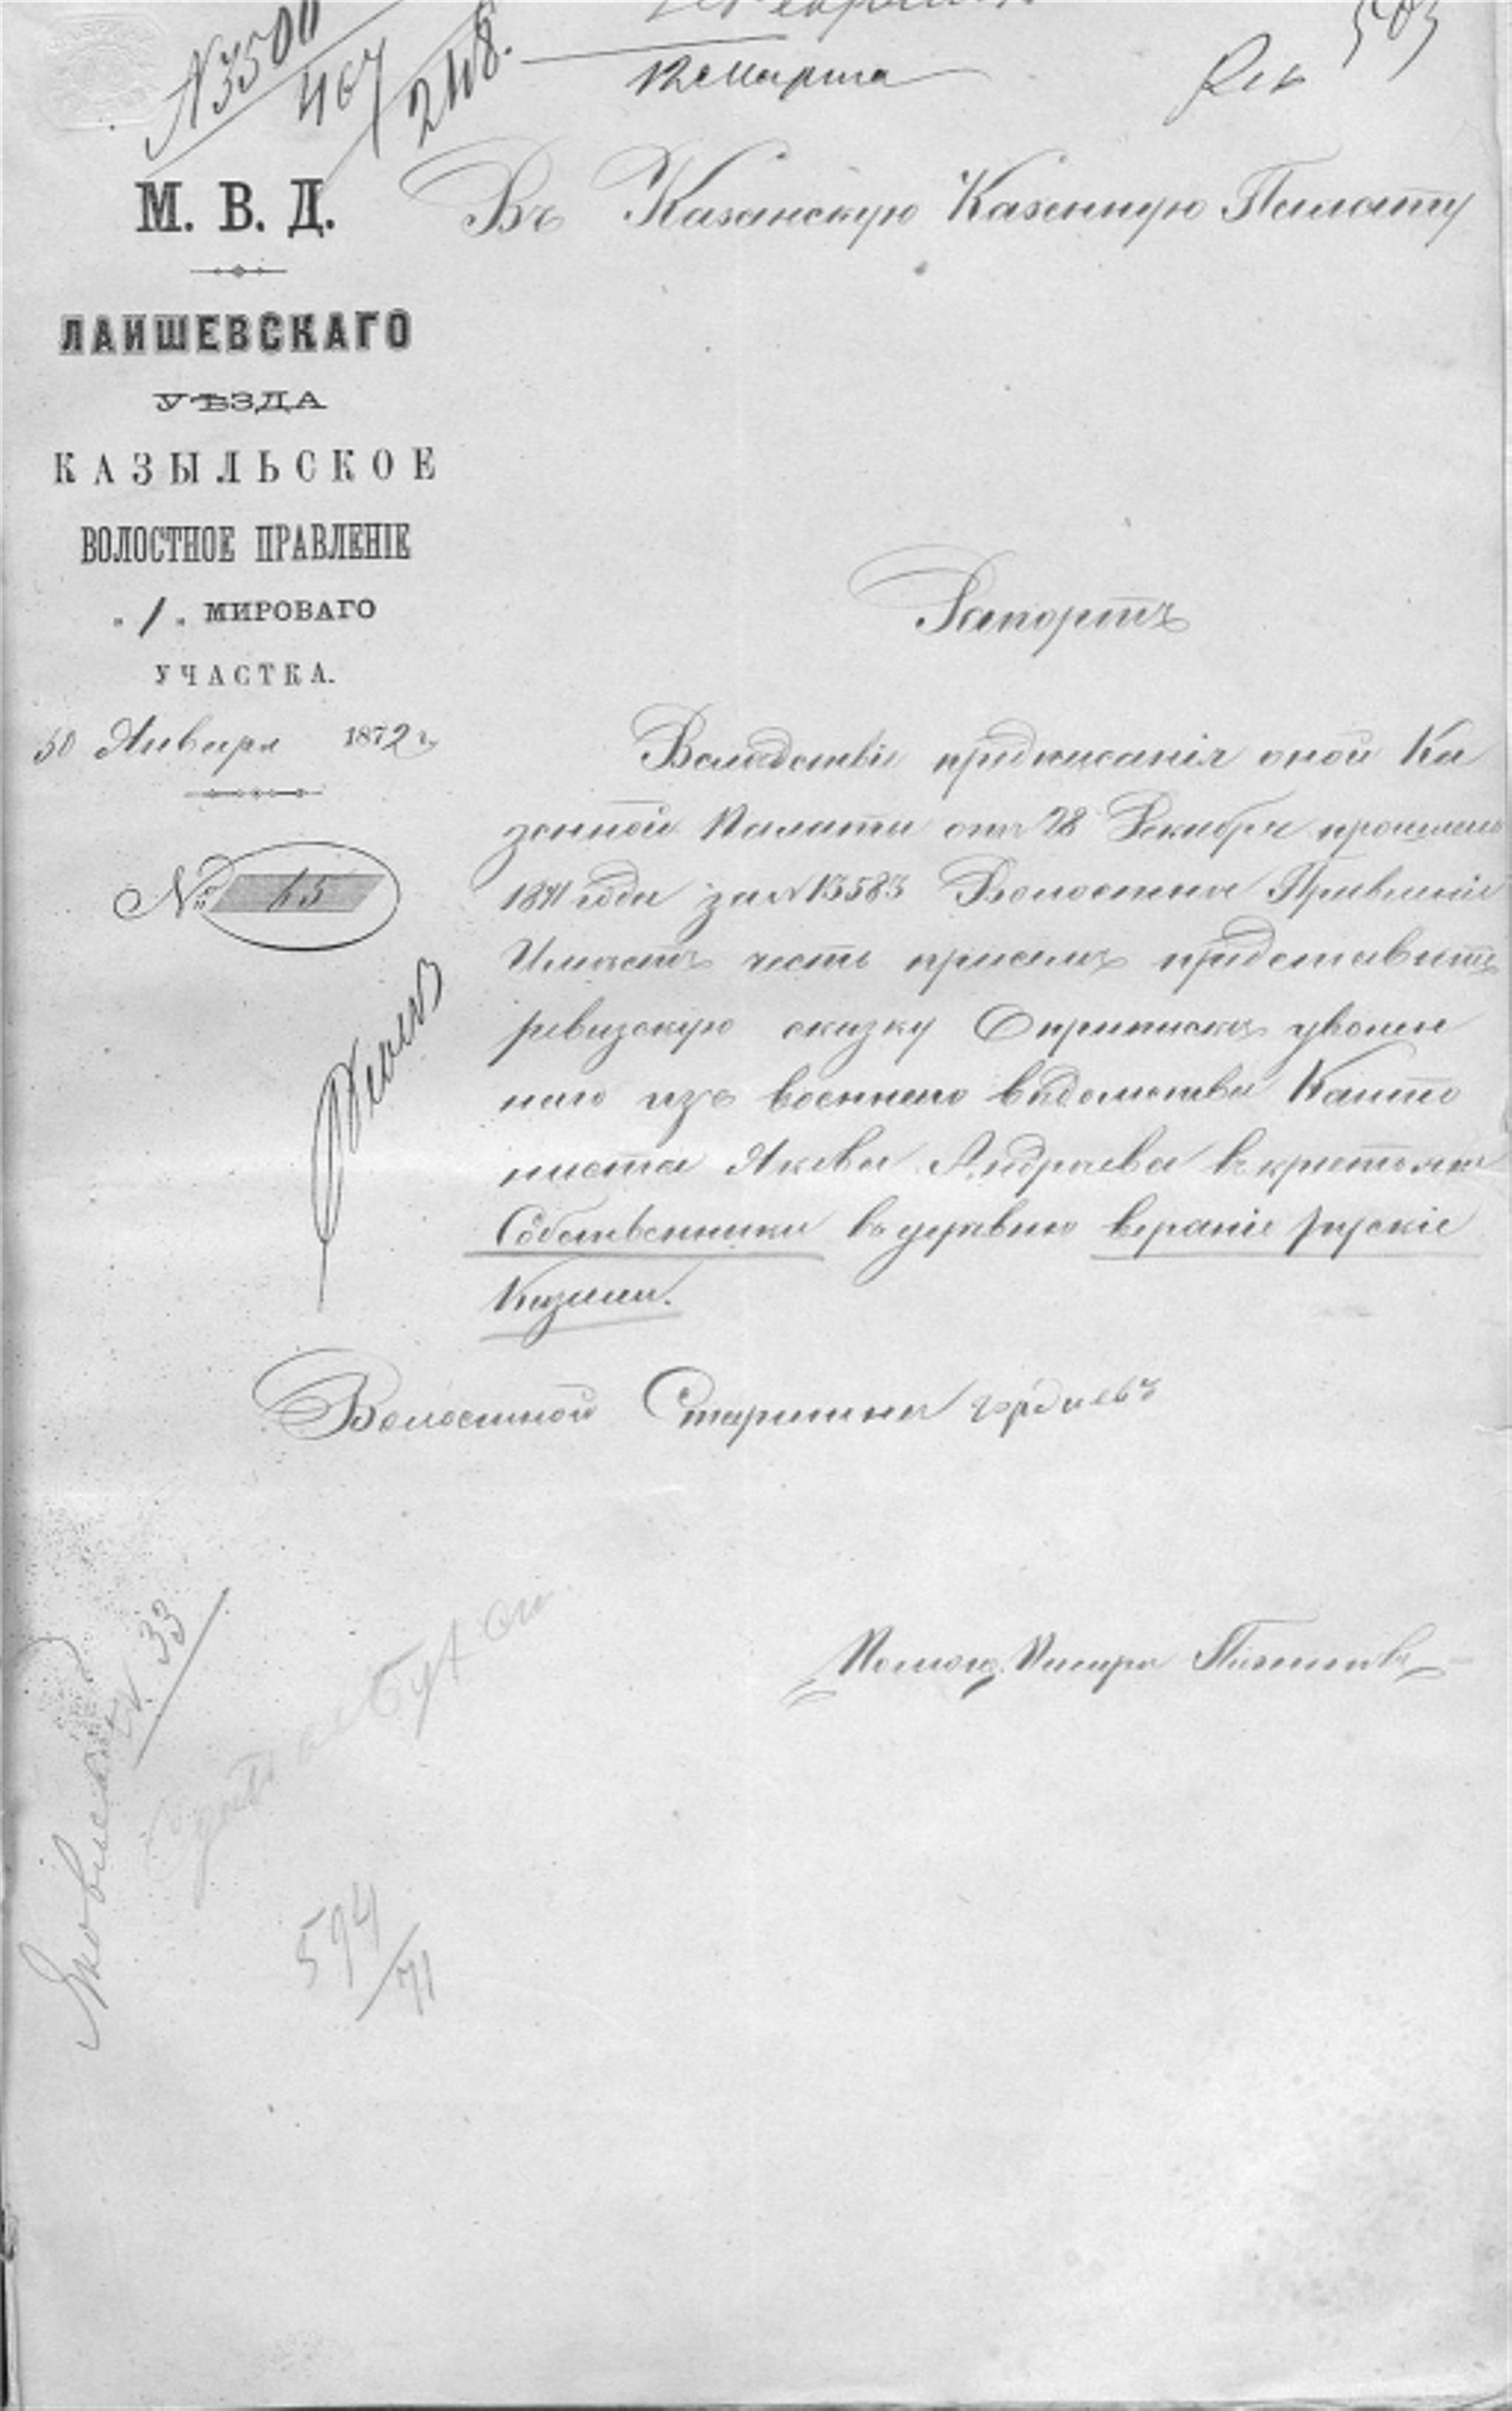 N 3500
467
248.
12 Марта
503
М. В. Д.
ЛАИШЕВСКАГО
УѢЗДА
КАЗЫЛЬСКОЕ
ВОЛОСТНОЕ ПРАВЛЕНІЕ
„ 1 „ МИРОВАГО
УЧАСТКА.
30 Января 1872 г.
№ 65
Въ Казанскую Казенную Палату
Рапортъ
Вслѣдствіе предписанія оной Ка
зенной Палаты отъ 28 Декабря прошлаго
1871 года за N 13583 Волостное Правленіе
Имѣетъ честь присемъ представить
ревизскую сказку О припискѣ уволен
наго изъ военнаго вѣдомства Канто
ниста Якова Андреева въ крестьяне
Собственники въ деревню верхніе рускіе
Казыли.
Волостной Старшина гордѣевъ
Помощ. Писаря
N. 33
594/71